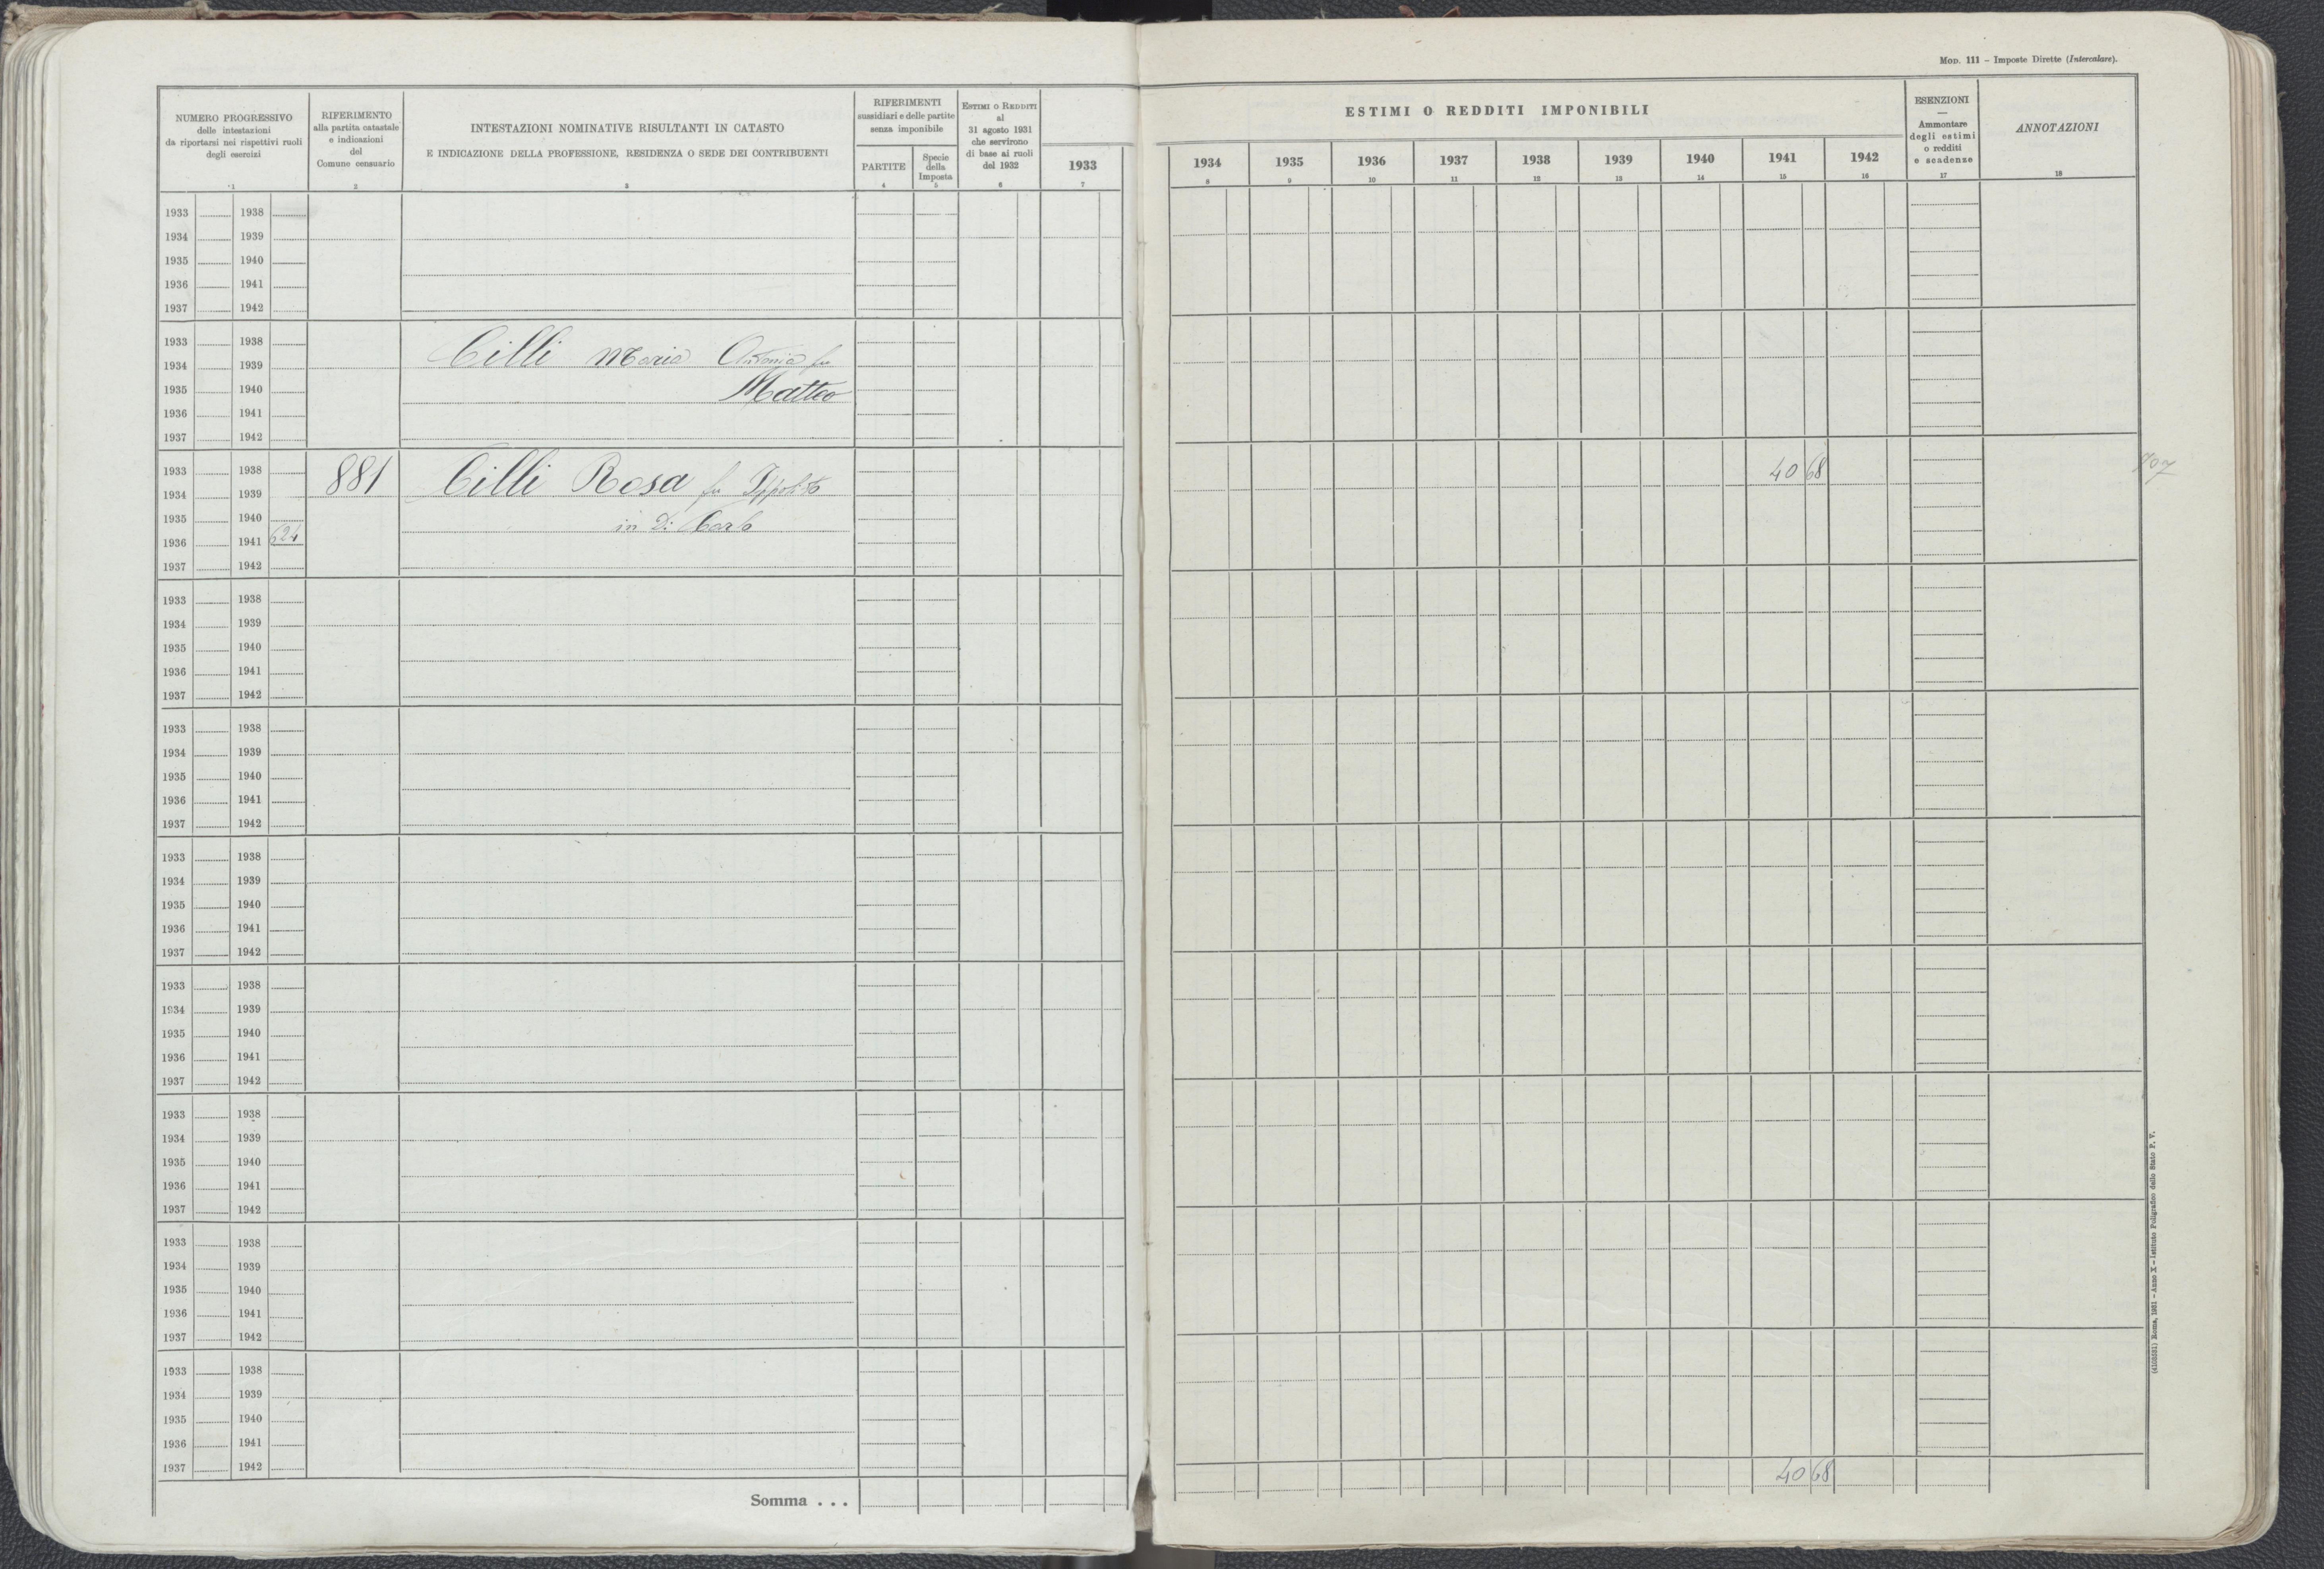 Mod. 111 – Imposte Dirette (Intercalare).
NUMERO PROGRESSIVO
delle intestazioni
da riportarsi nei rispettivi ruoli
degli esercizi
1
RIFERIMENTO
alla partita catastale
e indicazioni
del
Comune censuario
2
INTESTAZIONI NOMINATIVE RISULTANTI IN CATASTO
E INDICAZIONE DELLA PROFESSIONE, RESIDENZA O SEDE DEI CONTRIBUENTI
3
RIFERIMENTI
sussidiari e delle partite
senza imponibile
PARTITE
4
Specie
della
Imposta
5
Estimi o Redditi
al
31 agosto 1931
che servirono
di base ai ruoli
del 1932
6
1933
7
ESTIMI O REDDITI IMPONIBILI
1934 1935 1936 1937 1938 1939 1940 1941 1942
8 9 10 11 12 13 14 15 16
ESENZIONI
—
Ammontare
degli estimi
o redditi
e scadenze
17
ANNOTAZIONI
18
1933 1938
1934 1939
1935 1940
1936 1941
1937 1942
1933 1938
1934 1939 Cilli Maria Antonia fu
1935 1940 Matteo
1936 1941
1937 1942
1933 1938 40 68
1934 1939 881 Cilli Rosa fu Ippolito
1935 1940 in Di Carlo
1936 1941 624
1937 1942
1933 1938
1934 1939
1935 1940
1936 1941
1937 1942
1933 1938
1934 1939
1935 1940
1936 1941
1937 1942
1933 1938
1934 1939
1935 1940
1936 1941
1937 1942
1933 1938
1934 1939
1935 1940
1936 1941
1937 1942
1933 1938
1934 1939
1935 1940
1936 1941
1937 1942
1933 1938
1934 1939
1935 1940
1936 1941
1937 1942
1933 1938
1934 1939
1935 1940
1936 1941
1937 1942
Somma . . . 40 68
(4103581) Roma, 1931 – Anno X – Istituto Poligrafico dello Stato P. V.